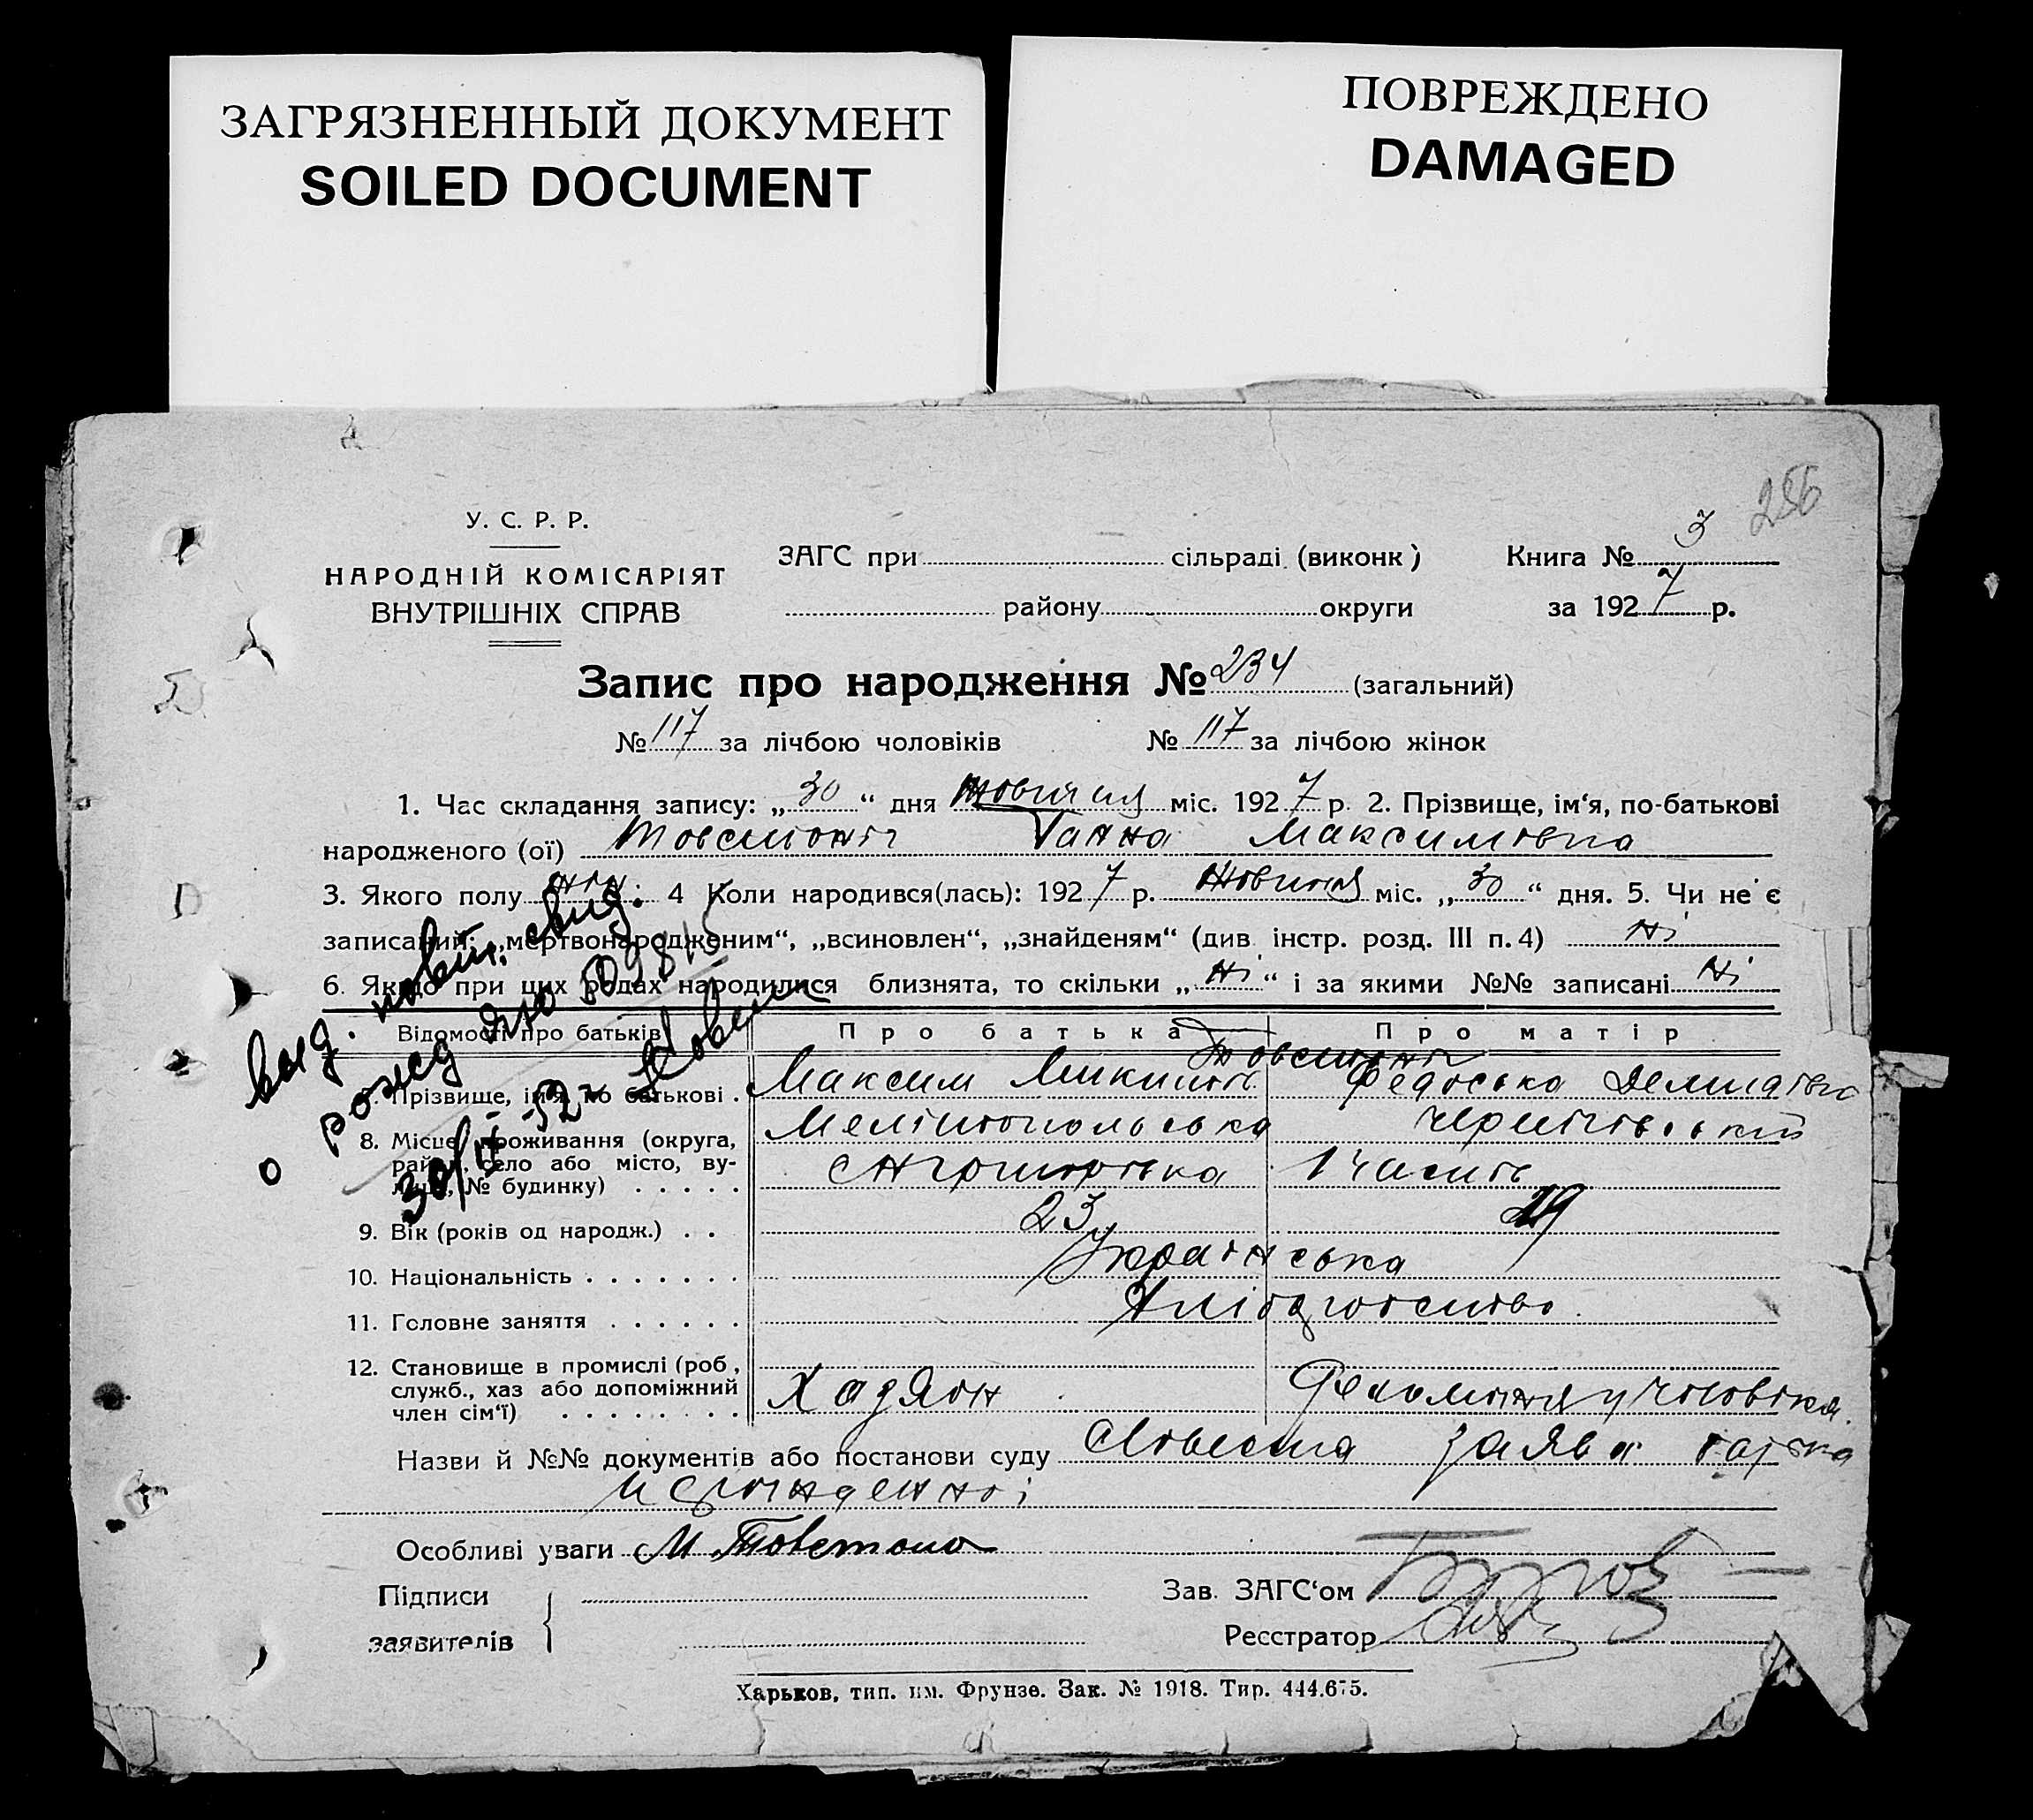 ЗАГРЯЗНЕННЫЙ ДОКУМЕНТ
SOILED DOCUMENT
ПОВРЕЖДЕНО
DAMAGED
256
У. С. Р. Р.
НАРОДНІЙ КОМІСАРІЯТ
ВНУТРІШНІХ СПРАВ
ЗАГС при сільраді (виконк) Книга № 3
району округи за 1927 р.
Запис про народження № 234 (загальний)
№ 117 за лічбою чоловіків № 117 за лічбою жінок
1. Час складання запису: „30“ дня Жовтня міс. 1927 р. 2. Прізвище, ім‘я, по-батькові
народженого (ої) Товстоніг Ганна Максимівна
3. Якого полу жін. 4 Коли народився(лась): 1927 р. Жовтня міс. „30“ дня. 5. Чи не є
записаний: „мертвонародженим“, „всиновлен“, „знайденям“ (див. інстр. розд. III п. 4) ні
6. Якщо при цих родах народилися близнята, то скільки „ні“ і за якими №№ записані ні
выд. повт. свид.
о рожд
Відомості про батьків Про батька Про матір
Товстоніг
Прізвище, ім‘я, по батькові . Максим Микитов. Федоська Демидівна
8. Місце проживання (округа, Мелітопольська Чернігівський
район, село або місто, ву-
лиця, № будинку) . . . . .
9. Вік (років од народж.) . . 23 19
10. Національність . . . . . . . Українська
11. Головне заняття . . . . . . Хліборобство.
12. Становище в промислі (роб.,
служб., хаз або допоміжний Хазяїн
член сім‘ї) . . . . . . . .
Назви й №№ документів або постанови суду Словесна заява батька
Особливі уваги М Товстоно
Підписи
заявителів
Зав. ЗАГС‘ом
Реєстратор
Харьков, тип. им. Фрунзе. Зак. № 1918. Тир. 444.675.